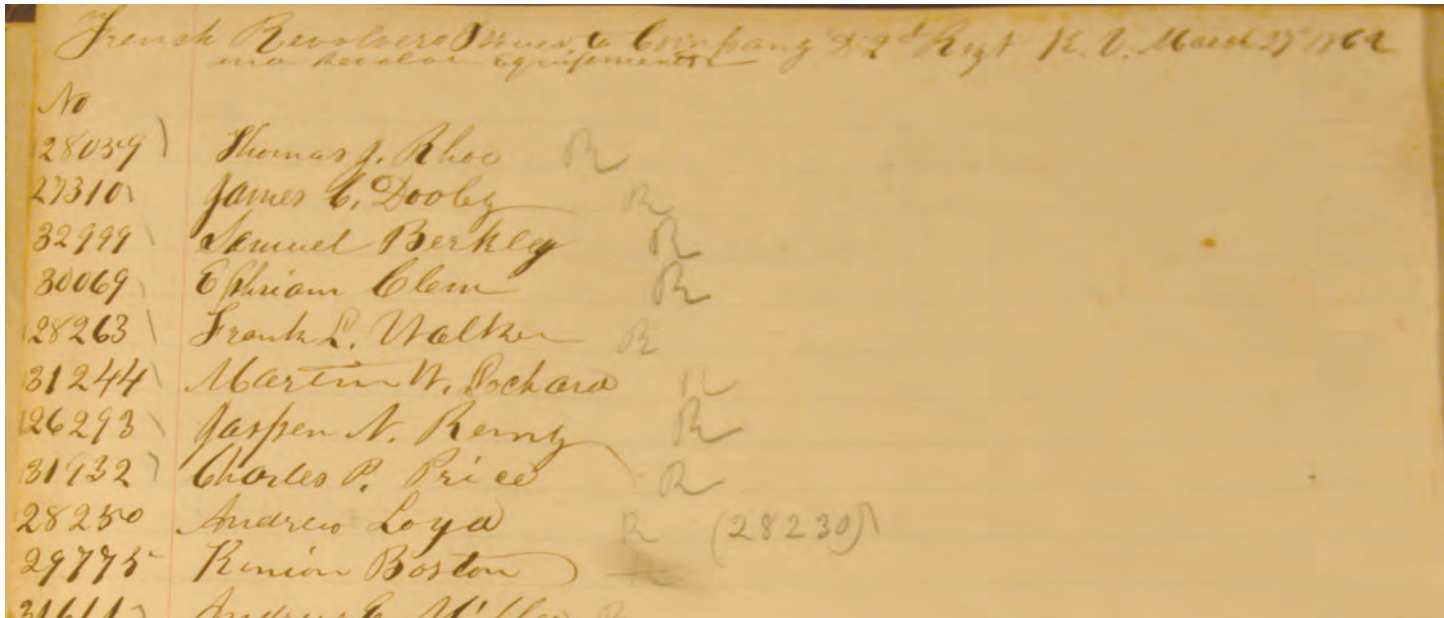 French Revolvers Issued to Company 2d Regt K. V. March 27 1862
and revolver Equipements
No
28059 Thomas J. Rhoo R
27310 James C. Dooley R
32999 Samuel Berkley R
30069 Ephriam Clem R
28263 Frank L. Walker R
31244 Martin W. R
26293 Jasper N. Remy R
31932 Charles P. Price R
28250 Andrew Loyd R (28230)
29775 Kinion Boston R
31611 Andrew C. Miller R